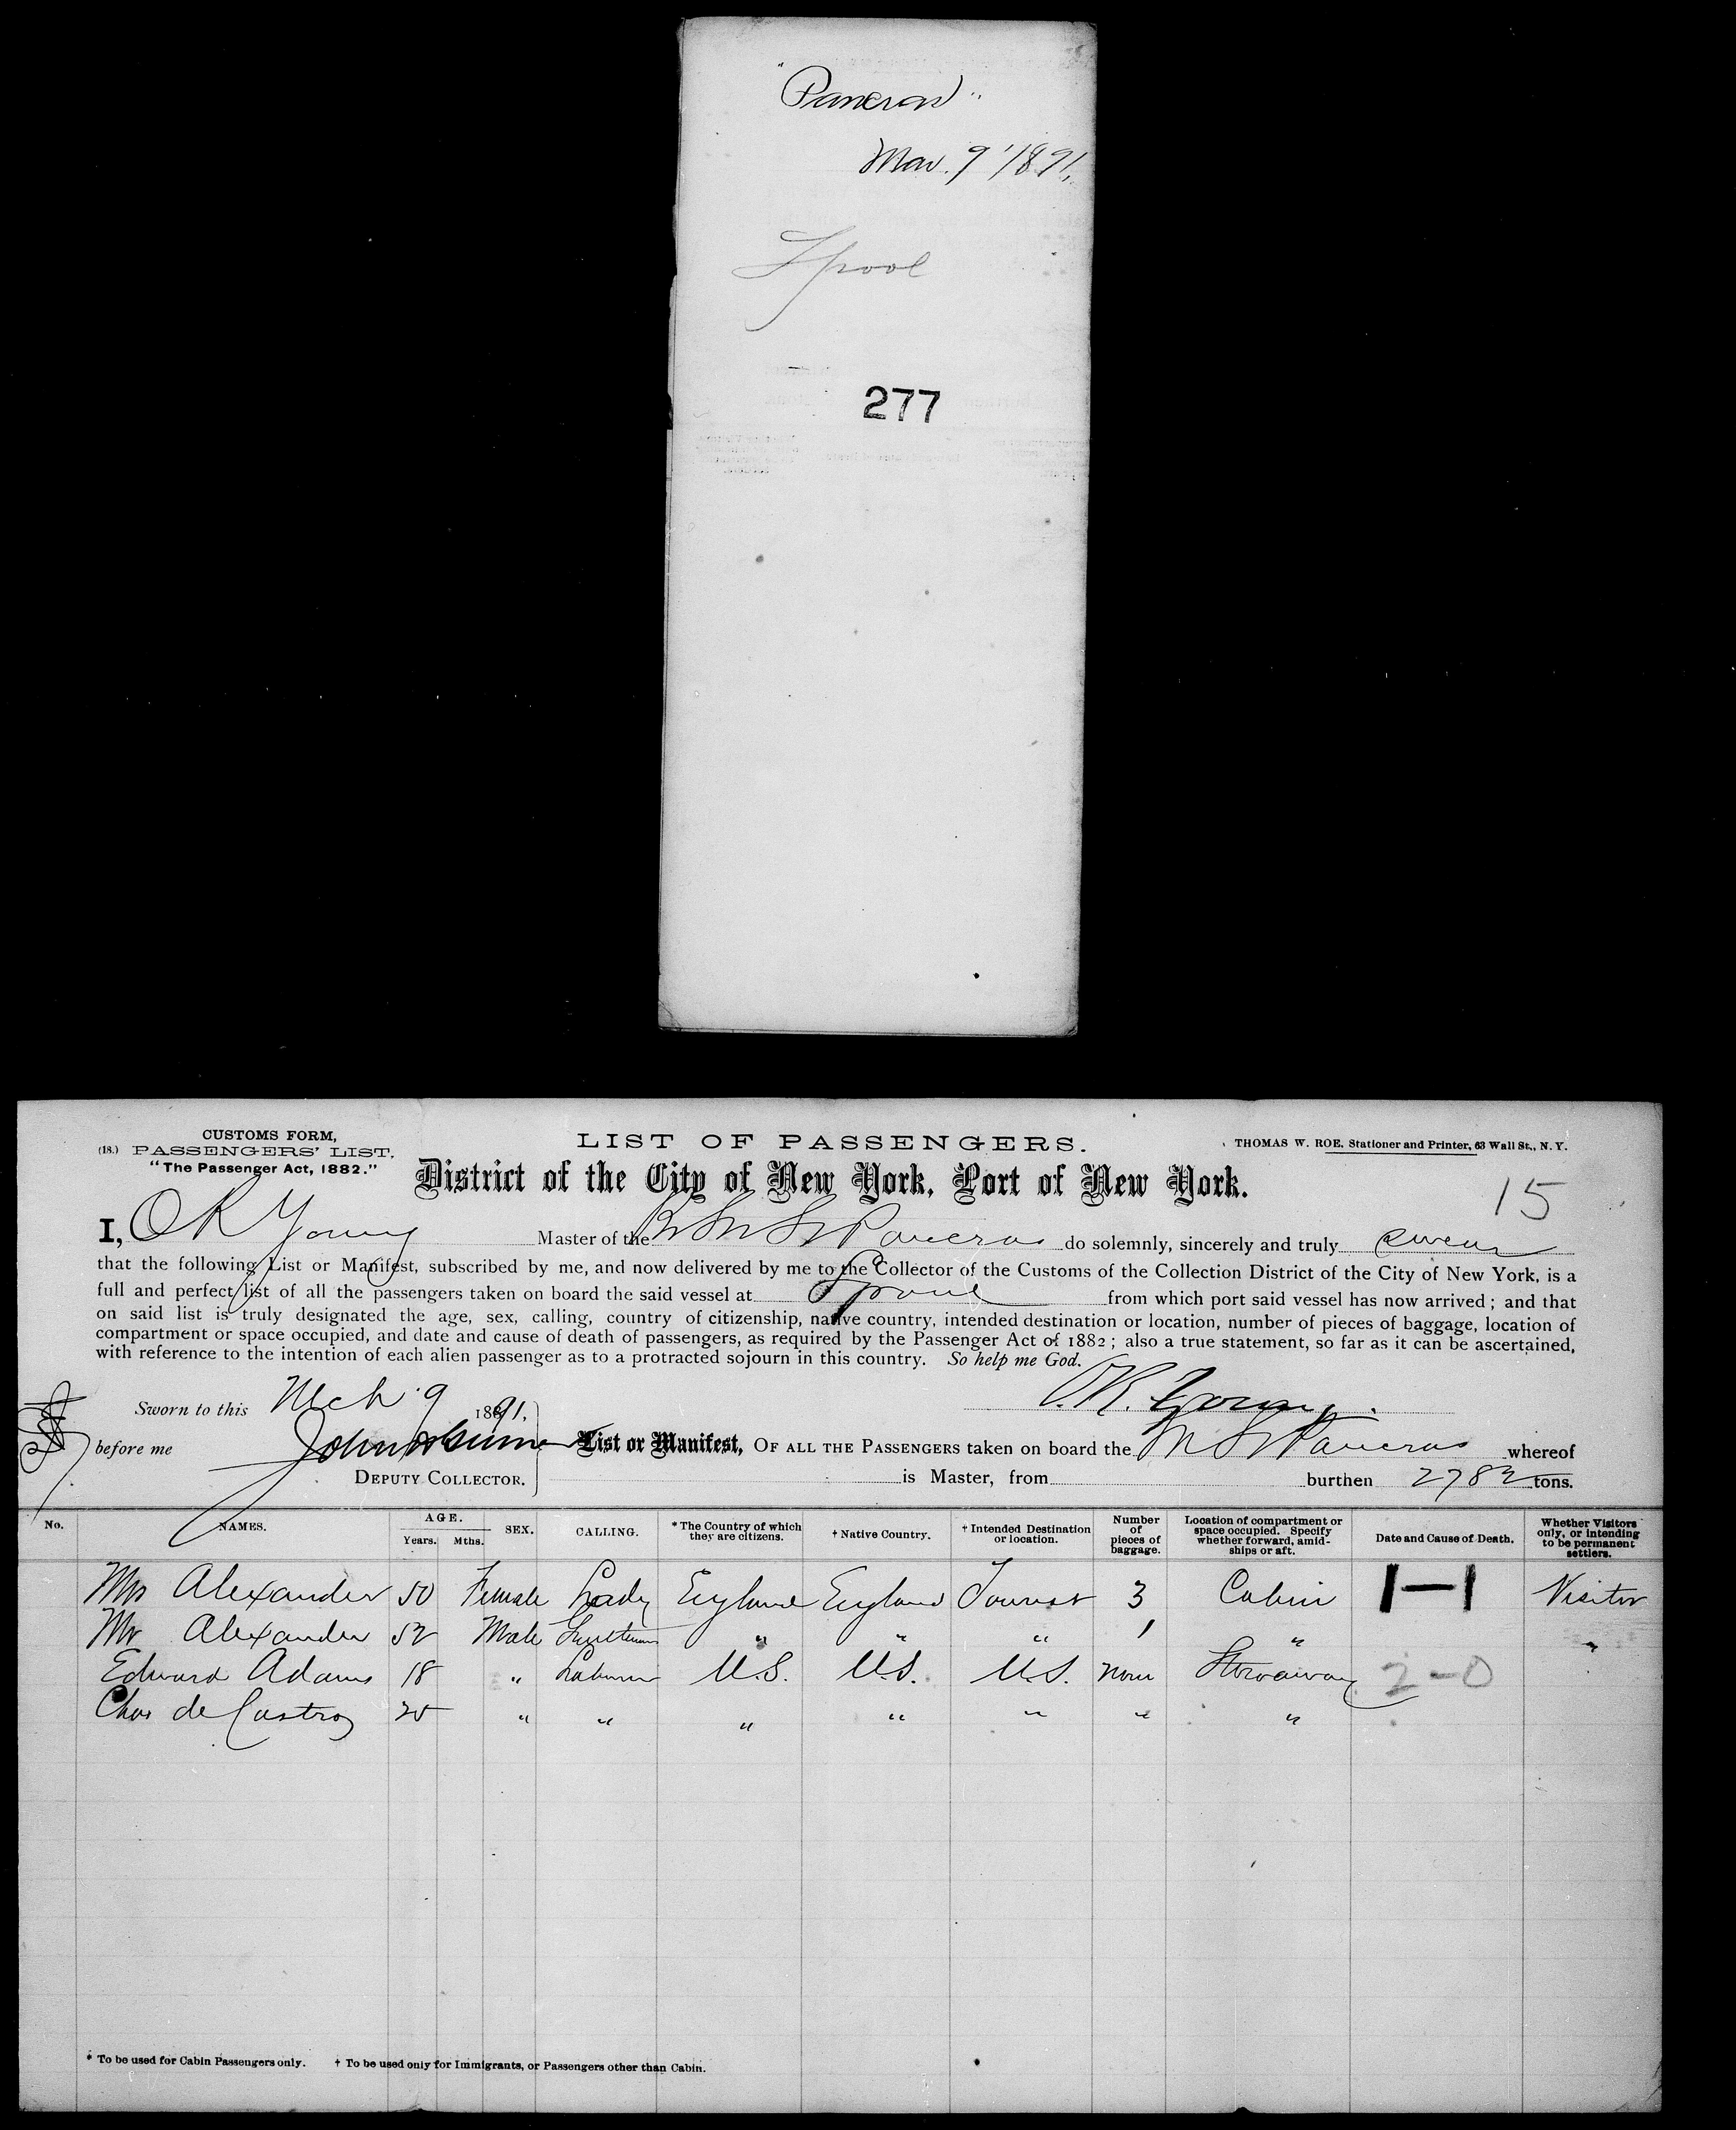 "Pancras"
Mar. 9 '1891.
Lpool
277
CUSTOMS FORM,
(18.) PASSENGERS' LIST,
"The Passenger Act, 1882."
LIST OF PASSENGERS.
THOMAS W. ROE, Stationer and Printer, 63 Wall St., N. Y.
District of the City of New York, Port of New York.
15
I, O R Young Master of the St Pancras do solemnly, sincerely and truly swear
that the following List or Manifest, subscribed by me, and now delivered by me to the Collector of the Customs of the Collection District of the City of New York, is a
full and perfect list of all the passengers taken on board the said vessel at Lpool from which port said vessel has now arrived; and that
on said list is truly designated the age, sex, calling, country of citizenship, native country, intended destination or location, number of pieces of baggage, location of
compartment or space occupied, and date and cause of death of passengers, as required by the Passenger Act of 1882; also a true statement, so far as it can be ascertained,
with reference to the intention of each alien passenger as to a protracted sojourn in this country. So help me God.
Sworn to this Mch 9 1891.
O.R. Young
before me John
List or Manifest, OF ALL THE PASSENGERS taken on board the St Pancras whereof
DEPUTY COLLECTOR.
is Master, from burthen 2783 tons.
No. NAMES. AGE. Years. Mths. SEX. CALLING. * The Country of which they are citizens. † Native Country. † Intended Destination or location. Number of pieces of baggage. Location of compartment or space occupied. Specify whether forward, amidships or aft. Date and Cause of Death. Whether Visitors only, or intending to be permanent settlers.
Mrs Alexander 50 Female Lady England England Tourist 3 Cabin 1-1 Visitor
Mr Alexander 52 Male Gentleman " " " 1 " "
Edward Adams 18 " Labourer U.S. U.S. U.S. None Stowaway 2-0
Chas de Castro 25 " " " " " " "
* To be used for Cabin Passengers only. † To be used only for Immigrants, or Passengers other than Cabin.